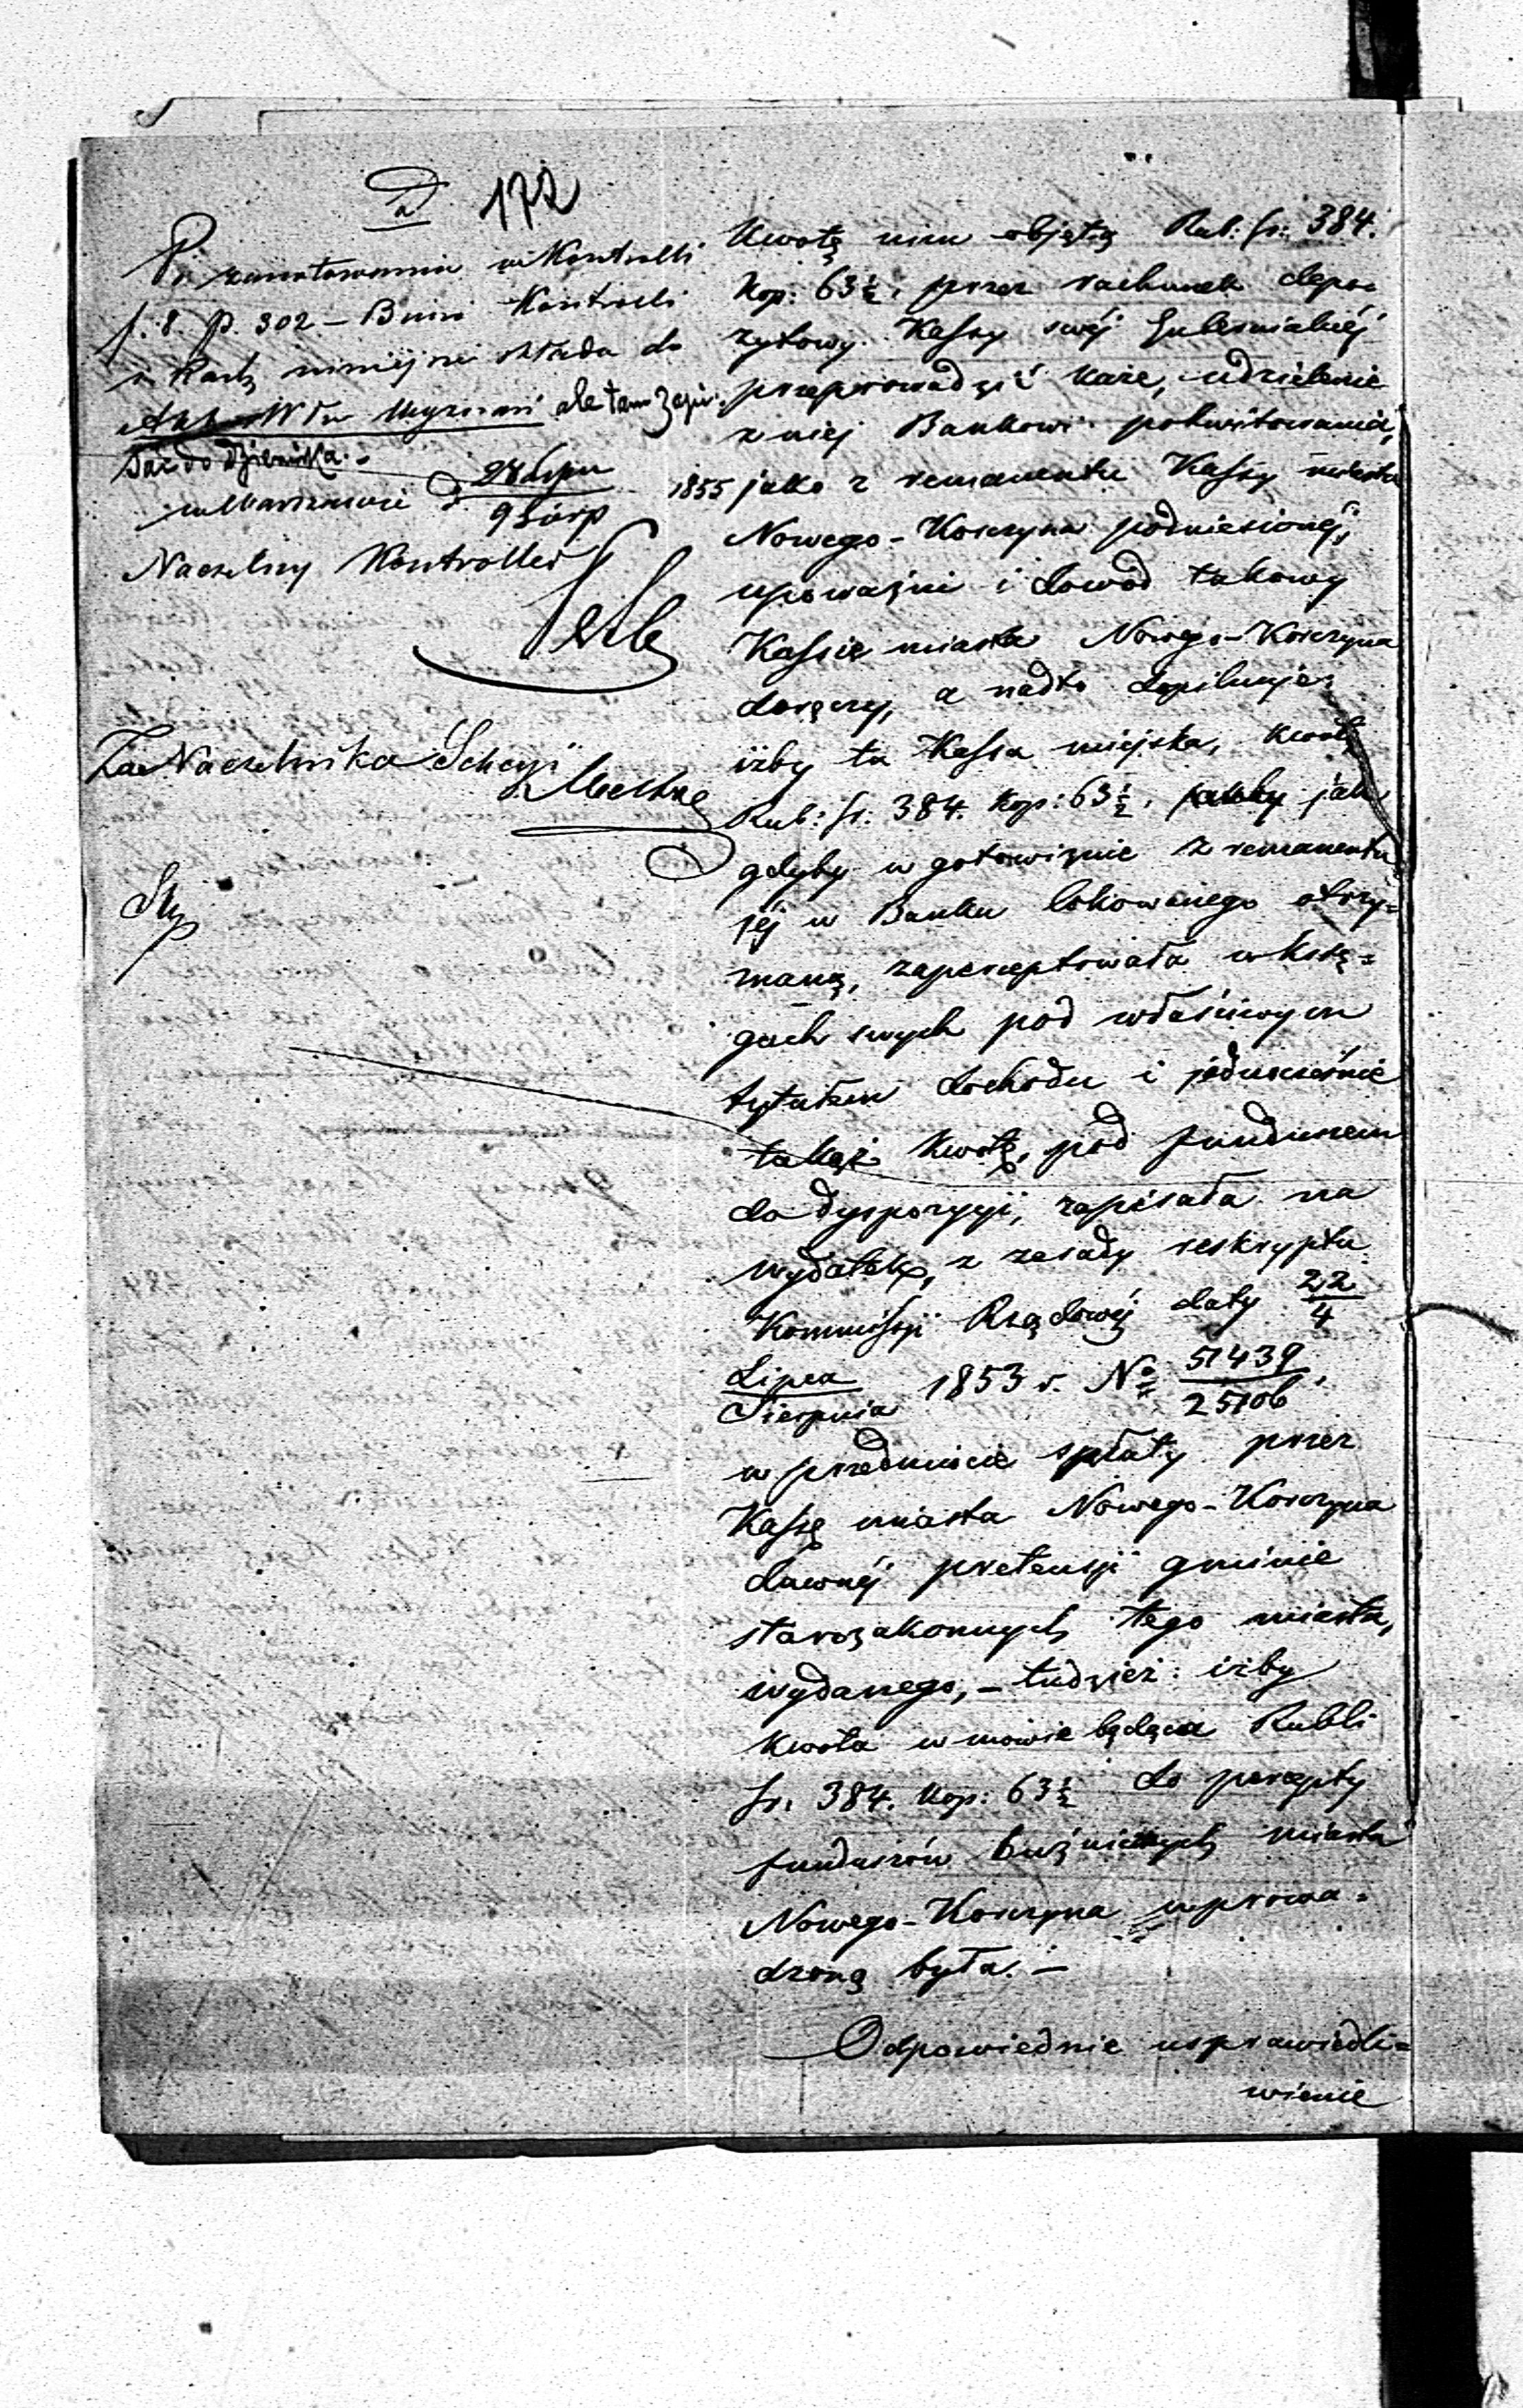 172
Po zanotowaniu w Kontrolli
f. 8. p. 302 – Biuro Kontroli
niniejsze składa do
ale tam
do dziennika.
w Warszawie d. 28 Lipca / 9 Sierp 1855
Naczelny Kontroller
Za Naczelnika Sekcyi
Kwotę nim objętą Rub: sr: 384.
Kop: 63½, przez rachunek depo=
zytowy Kassy swej Gubernialnéj
przeprowadzić każe, udzielenie
z niej Bankowi pokwitowania,
jako z remanentu Kassy miasta
Nowego-Korczyna podniesionéj,
upoważni i dowód takowy
Kassie miasta Nowego-Korczyna
doręczy, a nadto dopilnuje,
iżby ta Kassa miejska, kwotę
Rub: sr: 384. Kop: 63½, jak
gdyby w gotowiźnie z remanentu
jéj w Banku lokowanego otrzy=
maną, zaperceptowała w księ=
gach swych pod właściwym
tytułem dochodu i jednocześnie
takąż kwotę, pod funduszem
do dyspozycyi, zapisała na
wydatek, z zasady reskryptu
Kommissyi Rządowéj daty 22/4
Lipca/Sierpnia 1853 r. No 51439/25106,
w przedmiocie spłaty przez
Kassę miasta Nowego-Korczyna
dawnéj pretensyi gminie
starozakonnych tego miasta,
wydanego, – tudzież: iżby
kwota w mowie będąca Rubli
sr: 384. Kop: 63½ do percepty
funduszów bużniczych miasta
Nowego-Korczyna wprowa=
dzoną była. –
Odpowiednie usprawiedli=
wienie